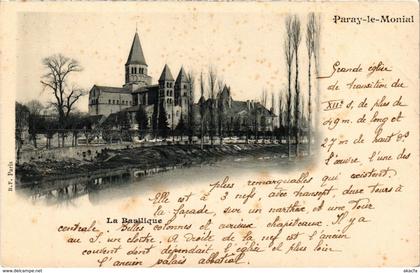 Paray-le-Monial
Grande église
de transition du
XIIe s, de plus de
49m. de haut et
27 m de haut.
L'œuvre, l'une des
plus remarquables qui existent.
Elle est à 3 nefs, avec transept, deux tours à
la façade, sur un narthex et une tour
centrale. Belles colonnes et curieux chapiteaux. Il y a
au S. un cloître. A droite de la nef est l'ancien
couvent dont dépendait l'église et plus loin
l'ancien palais abbatial.
La Basilique
B.F. Paris
akpool.co.uk